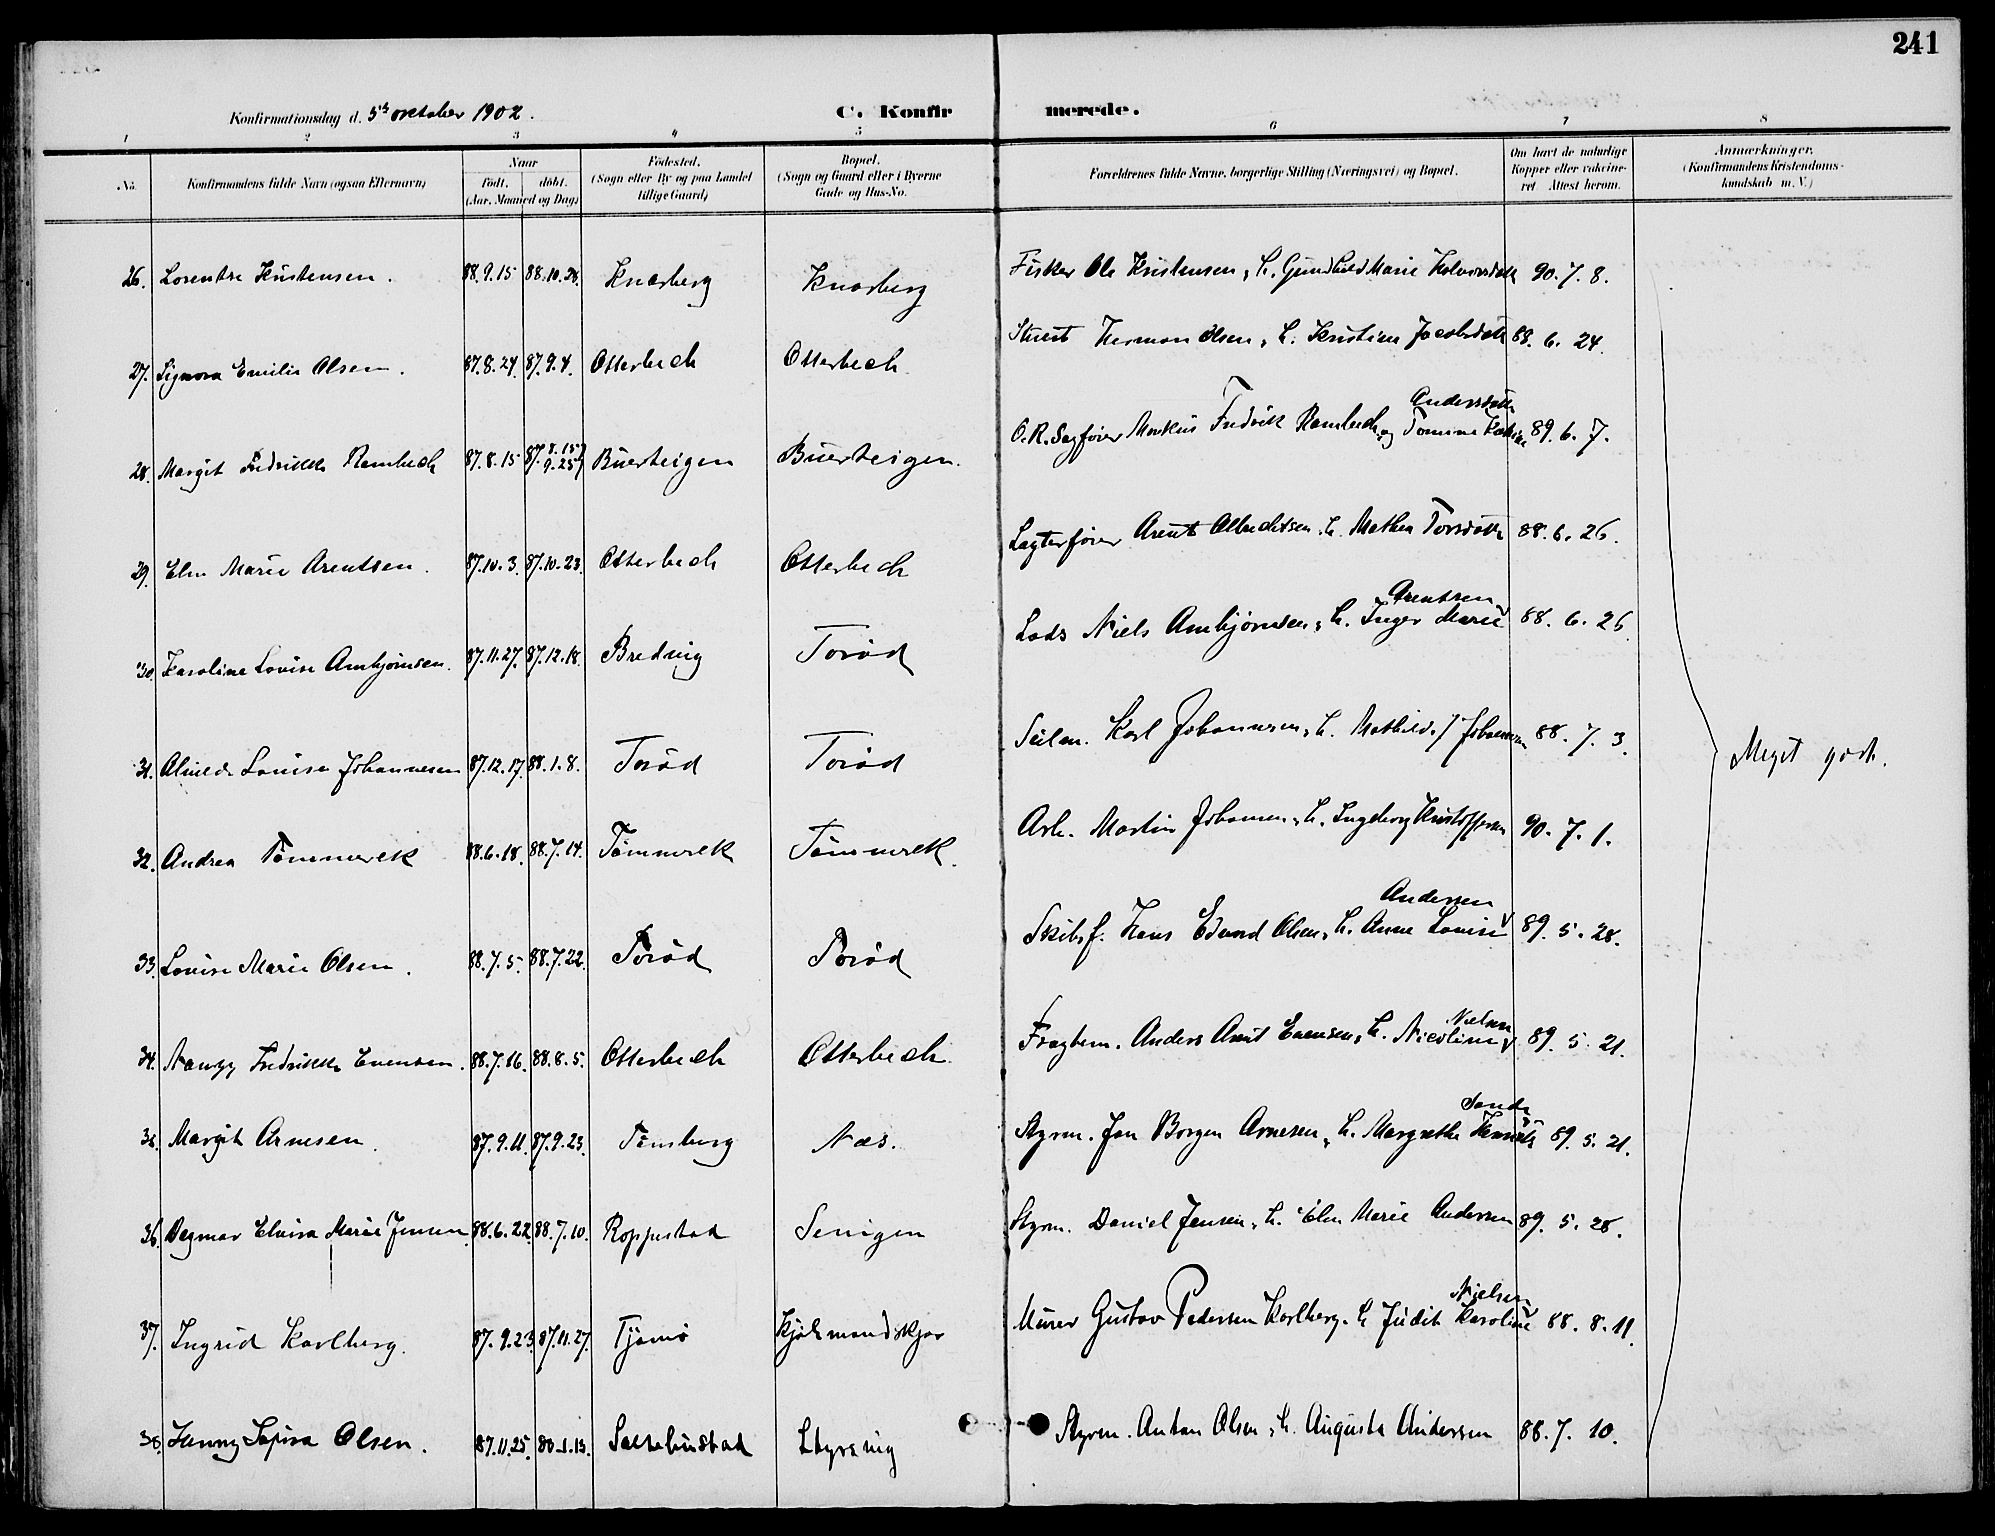 241
Konfirmationsdag d. 5te oktober 1902.
C. Konfirmerede.
1 2 3 4 5 6 7 8
No. Konfirmandens fulde Navn (ogsaa Efternavn) Naar født. døbt. (Aar, Maaned og Dag) Fødested. (Sogn eller By og paa Landet tillige Gaard) Bopæl. (Sogn og Gaard eller i Byerne Gade og Hus-No. Forældrenes fulde Navne, borgerlige Stilling (Næringsvei) og Bopæl. Om havt de naturlige Kopper eller vakcineret. Attest herom. Anmærkninger. (Konfirmandens Kristendomskundskab m. V.)
26. Lorentse Kristensen. 88.9.15 88.10.28. Knarberg Knarberg Fisker Ole Kristensen, h. Gunhild Marie Halvorsdatt 90.7.8.
27. Signora Emilie Olsen. 87.8.24. 87.9.4. Otterbech Otterbech Stuert Herman Olsen, h. Kristine Jacobsdatt 88.6.24.
28. Margit Fredrikke Rambech 87.8.15 87.9.25 Buerteigen Buerteigen. O.R.Sagfører Markus Fredrik Rambech og Tomine Andersdatt 89.6.7.
29. Elen Marie Arentsen. 87.10.3. 87.10.23. Otterbech Otterbech Lægterfører Arent Albrechtsen h. Mathea Torsdatt 88.6.26.
30. Karoline Lovise Arnbjørnsen. 87.11.27. 87.12.18. Bredvig Torød Lods Niels Arnbjørnsen, h. Inger Marie Arentsen 88.6.26.
31. Alvilde Lovise Johannesen 87.12.17. 88.1.8. Torød Torød Seilm. Karl Johannesen, h. Mathilde J Johannesen 88.7.3.
32. Andrea Tømmerek 88.6.18. 88.7.14. Tømmerek Tømmerek. Arb. Martin Johansen, h. Ingeborg Kristoffersen 90.7.1.
33. Lovise Marie Olsen. 88.7.5. 88.7.22. Torød Torød Skibsf. Hans Edvard Olsen, h. Anne Lovise Andersen 89.5.28.
34. Nanzy Fredrikke Evensen. 88.7.16. 88.8.5. Otterbech Otterbech. Fragtem. Anders Arnt Evensen, h. Nicoline Nielsen 89.5.21.
35. Margit Arnesen. 87.9.11. 87.9.23. Tønsberg Næs. Styrm. Jan Borgen Arnesen, h. Margrethe Sande 89.5.21.
36. Dagmar Elvira Marie Jensen 88.6.22. 88.7.10. Roppestad Senigen Styrm. Daniel Jensen, h. Elen Marie Andersen 89.5.28.
37. Ingrid Karlberg. 87.9.23. 87.11.27. Tjømø Kjølmandskjær Murer Gustav Pedersen Karlberg. h. Judit Karoline Nielsen 88.8.11.
38. Jenny Sofira Olsen. 87.11.25. Saltebustad Styrsvig Styrm. Anton Olsen, h. Augusta Andersen 88.7.10.
Meget godt.